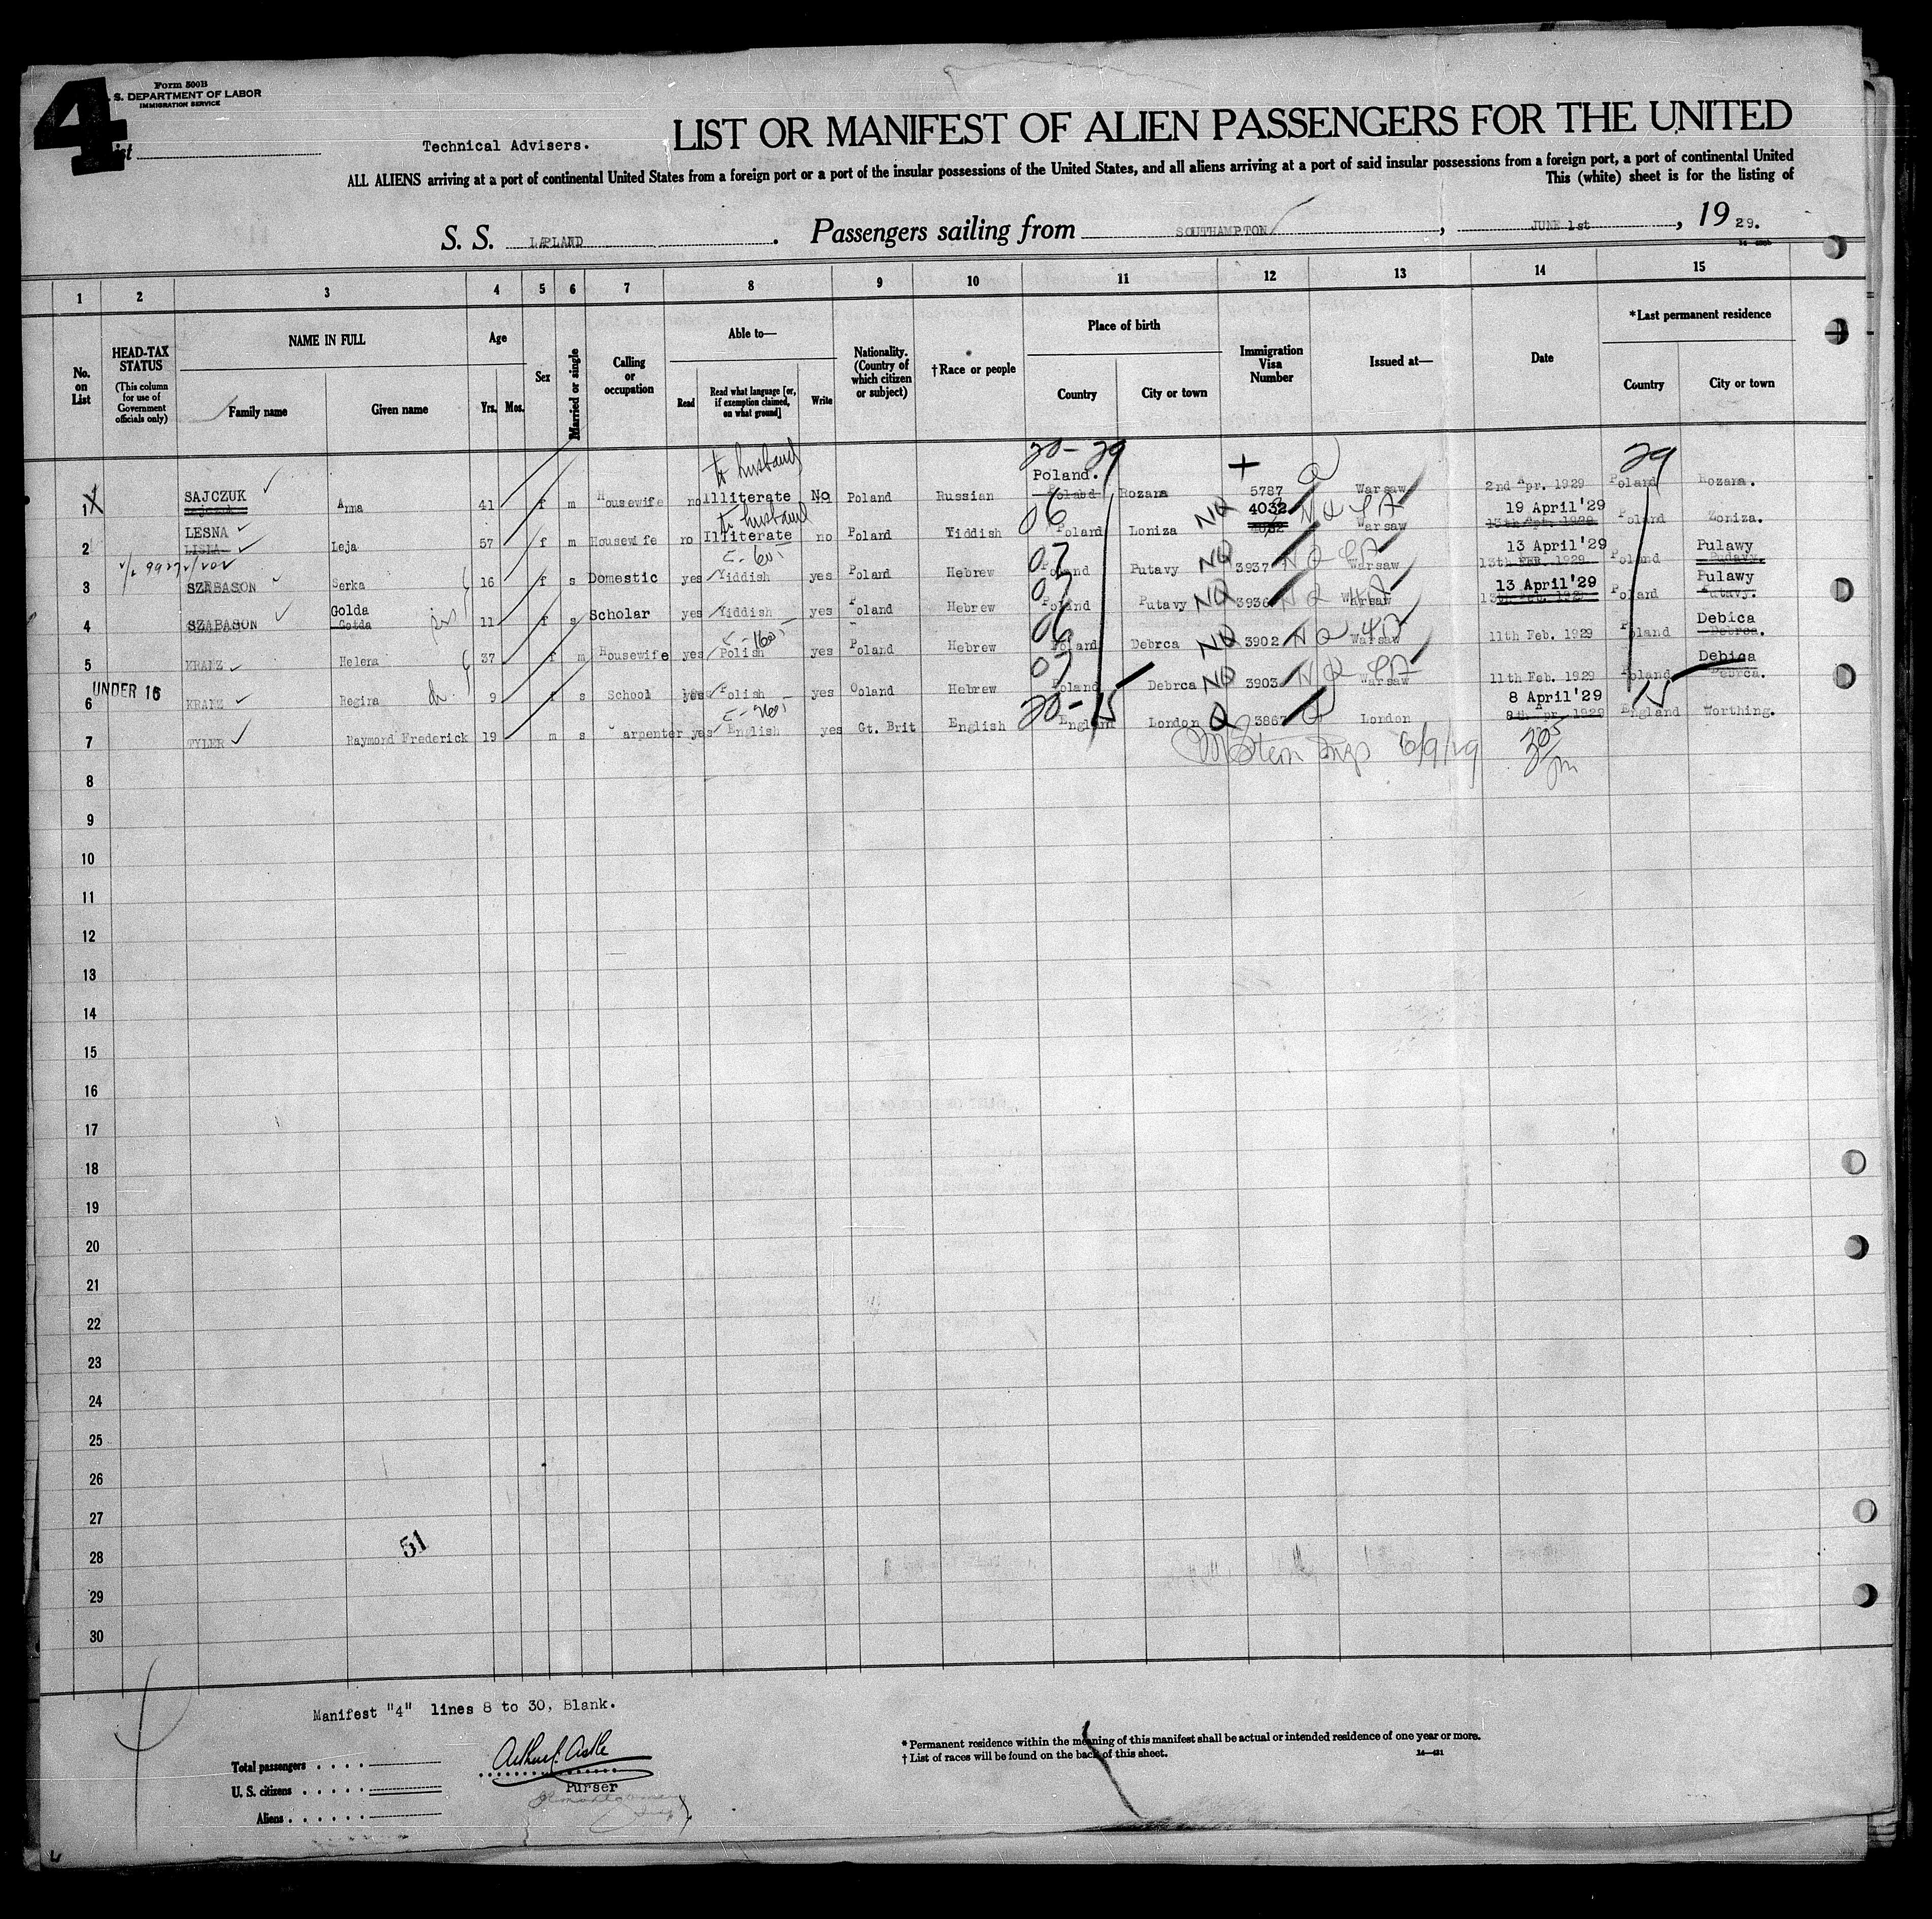 4
Form 500B
S. DEPARTMENT OF LABOR
IMMIGRATION SERVICE
Technical Advisers.
LIST OR MANIFEST OF ALIEN PASSENGERS FOR THE UNITED
ALL ALIENS arriving at a port of continental United States from a foreign port or a part of the insular possessions of the United States, and all aliens arriving at a port of said insular possessions from a foreign port, a port of continental United
This (white) sheet is for the listing of
S. S. LAPLAND. Passengers sailing from SOUTHAMPTON, JUNE 1st, 19 29.
1 2 3 4 5 6 7 8 9 10 11 12 13 14 15
No. on List
HEAD-TAX STATUS (This column for use of Government officials only)
NAME IN FULL
Family name
Given name
Age
Yrs. Mos.
Sex
Married or single
Calling or occupation
Able to—
Read
Read what language [or, if exemption claimed, on what ground]
Write
Nationality. (Country of which citizen or subject)
†Race or people
Place of birth
Country
City or town
Immigration Visa Number
Issued at—
Date
*Last permanent residence
Country
City or town
to husband 20-29 + Q 29
1 SAJCZUK Anna 41 f m Housewife no Illiterate No Poland Russian Poland. Poland Rozara 5787 Warsaw 2nd Apr. 1929 Poland Rozara.
to husband
2 LESNA Leja 57 f m Housewife no Illiterate no Poland Yiddish 06 Poland Loniza NQ 4032 NQ Warsaw 19 April'29 Poland Zoniza.
3 SZABASON Serka 16 f s Domestic yes Yiddish yes Poland Hebrew 07 Poland Putavy NQ 3937 NQ Warsaw 13 April'29 13th Feb. 1929 Poland Pulawy Putavy.
4 SZABASON Golda Gotda 11 f s Scholar yes Yiddish yes Poland Hebrew 07 Poland Putavy NQ 3936 NQ Warsaw 13 April'29 13th Feb. 1929 Poland Pulawy Putavy.
5 KRANZ Helena 37 f m Housewife yes Polish yes Poland Hebrew 06 Poland Debrca NQ 3902 NQ Warsaw 11th Feb. 1929 Poland Debica Debrca.
UNDER 16
6 KRANZ Regina 9 f s School yes Polish yes Poland Hebrew 07 Poland Debrca NQ 3903 NQ Warsaw 11th Feb. 1929 Poland Debica Debrca.
7 TYLER Raymond Frederick 19 m s Carpenter yes English yes Gt. Brit English 20-15 England London Q 3867 Q London 8 April'29 8th Apr. 1929 15 England Worthing.
6/9/29
8
9
10
11
12
13
14
15
16
17
18
19
20
21
22
23
24
25
26
27
28
51
29
30
Manifest "4" lines 8 to 30, Blank.
Total passengers
U. S. citizens
Aliens
Purser
* Permanent residence within the meaning of this manifest shall be actual or intended residence of one year or more.
† List of races will be found on the back of this sheet.
14—421